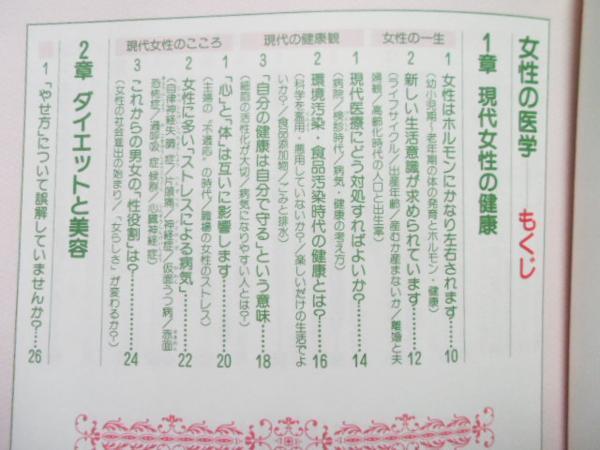 女性の医学 もくじ
1章 現代女性の健康
女性の一生
1 女性はホルモンにかなり左右されます……10
(幼小児期〜老年期の体の発育とホルモン・健康)
2 新しい生活意識が求められています……12
(ライフサイクル/出産年齢/産むか産まないか/離婚と夫
婦観/高齢化時代の人口と出生率)
現代の健康観
1 現代医療にどう対処すればよいか?……14
(病院/検診時代/病気・健康の考え方)
2 環境汚染・食品汚染時代の健康とは?……16
(科学を濫用・悪用していないか?/楽しいだけの生活でよ
いか?/食品添加物/ごみと排水)
3 「自分の健康は自分で守る」という意味……18
(細胞の活性化が大切/病気になりやすい人とは?)
現代女性のこころ
1 「心」と「体」は互いに影響します……20
(主婦の“不適応”の時代/職場の女性のストレス)
2 女性に多い“ストレスによる病気”……22
(自律神経失調症/片頭痛/神経症/仮面うつ病/赤面
恐怖症/過呼吸症候群/心臓神経症)
3 これからの男女の“性役割”は?……24
(女性の社会進出の始まり/「女らしさ」が変わるか?)
2章 ダイエットと美容
1 「やせ方」について誤解していませんか?……26